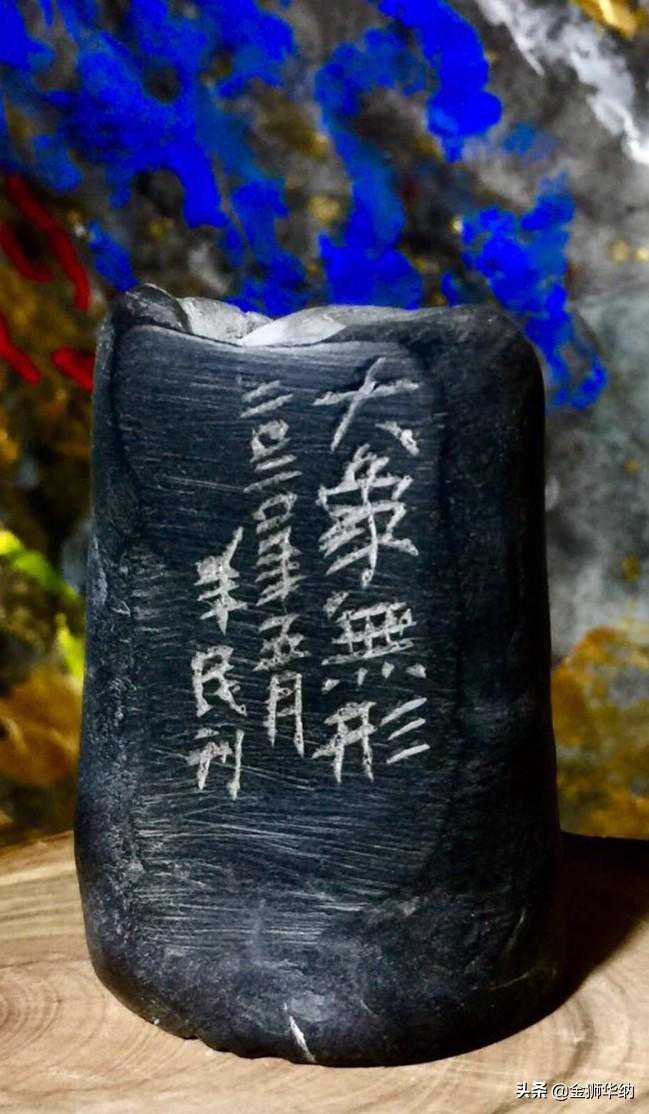 大象無形
二〇二〇年五月
民刊
头条 @金狮华纳